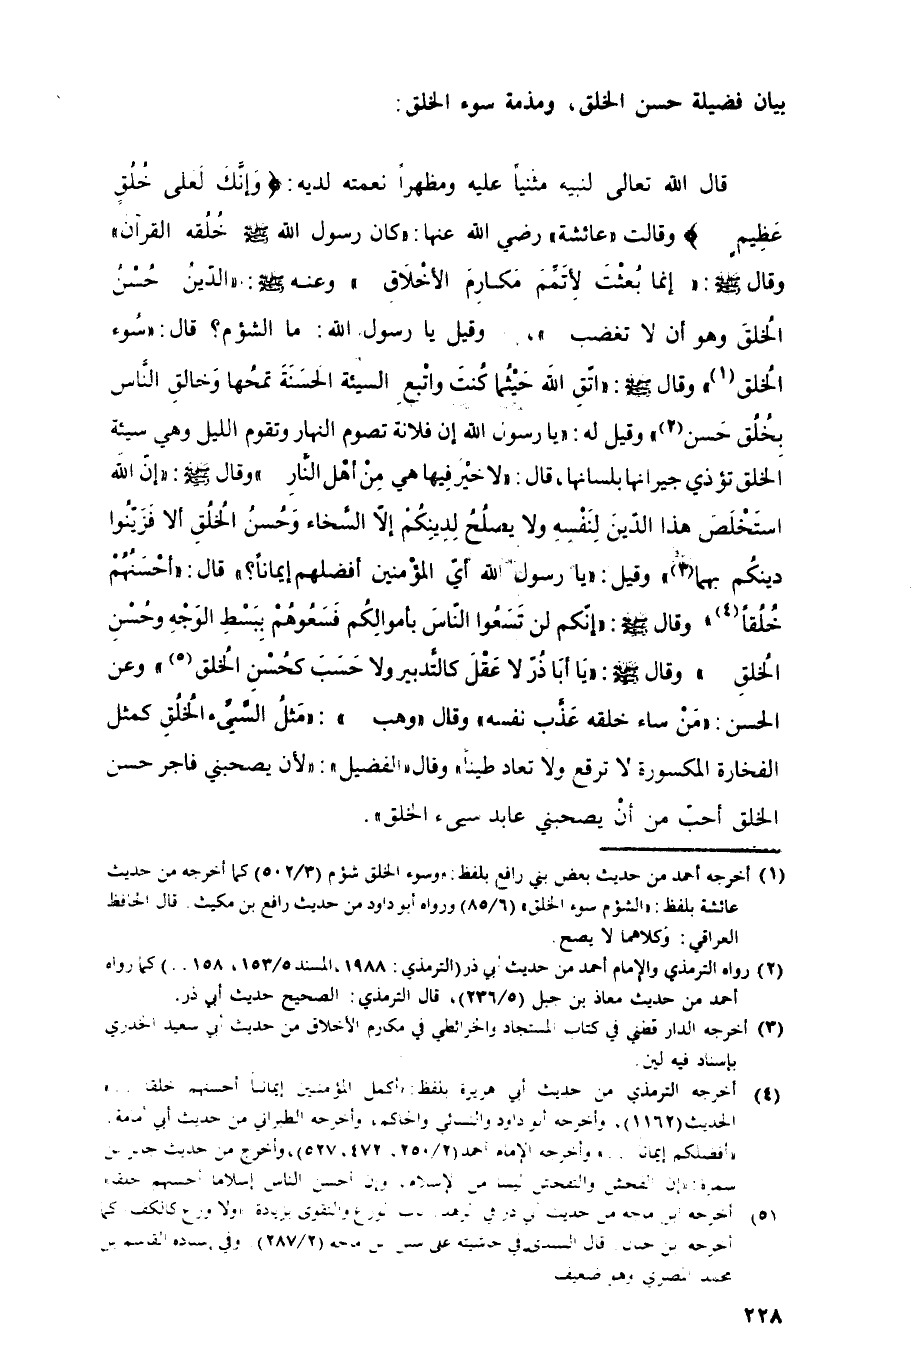 بيان فضيلة حسن الخلق، ومذمة سوء الخلق:
قال الله تعالى لنبيه مثنياً عليه ومظهراً نعمته لديه: ﴿ وَإِنَّكَ لَعلى خُلُقٍ
عَظِيمٍ ﴾ وقالت «عائشة» رضي الله عنها: «كان رسول الله ﷺ خُلُقه القرآن»
وقال ﷺ: « إنما بُعثْتَ لِأتَمِّمَ مَكـارِمَ الأخْلَاق » وعنـه ﷺ: «الدّينُ حُسْنُ
الخُلقَ وهو أن لا تغضب »، وقيل يا رسول الله: ما الشؤم؟ قال: «سُوء
الخُلق(١)» وقال ﷺ: «اتّقِ اللهَ حَيْثُما كُنتَ واتْبِعِ السيئة الحَسَنَةَ تمحُها وَخالقِ النَّاس
بِخُلُق حَسن(٢)» وقيل له: «يا رسول الله إن فلانة تصوم النهار وتقوم الليل وهي سيئة
الخلق تؤذي جيرانها بلسانها، قال: «لا خيْرَ فِيها هي مِنْ أهْل النَّار » وقال ﷺ: «إنّ الله
استَخْلَصَ هذا الدّينَ لِنَفْسِهِ ولا يصلُحُ لِدِينِكُمْ إلّا السَّخاء وَحُسنُ الخُلُق ألا فَزَيّنُوا
دينكُم بهما(٣)» وقيل: «يا رسول الله أيّ المؤمنين أفضلهم إيماناً؟» قال: «أحْسَنُهُمْ
خُلُقاً(٤)» وقال ﷺ: «إنّكم لن تَسَعُوا النّاسَ بأموالِكُم فَسَعُوهُمْ بِبَسْطِ الوَجْهِ وحُسْنِ
الخُلقِ » وقال ﷺ: «يَا أبَا ذُرّ لا عَقْلَ كالتَّدبير ولا حَسَبَ كحُسْنِ الخُلق(٥)» وعن
الحسن: «مَنْ ساء خلقه عَذَّب نفسه» وقال «وهب » : «مَثلُ السَّيِّء الخُلُقِ كمثل
الفخارة المكسورة لا ترقع ولا تعاد طيناً» وقال «الفضيل»: «لأن يصحبني فاجر حسن
الخلق أحبّ من أنْ يصحبني عابد سيىء الخلق».
(١) أخرجه أحمد من حديث بعض بني رافع بلفظ: «وسوء الخلق شؤم (٥٠٢/٣) كما أخرجه من حديث
عائشة بلفظ: «الشؤم سوء الخلق» (٨٥/٦) ورواه أبو داود من حديث رافع بن مكيث. قال الحافظ
العراقي: وكلاهما لا يصح.
(٢) رواه الترمذي والإمام أحمد من حديث أبي ذر (الترمذي: ١٩٨٨، المسند ١٥٣/٥، ١٥٨ . . ) كما رواه
أحمد من حديث معاذ بن جبل (٢٣٦/٥)، قال الترمذي: الصحيح حديث أبي ذر.
(٣) أخرجه الدار قطني في كتاب المستجاد والخرائطي في مكارم الأخلاق من حديث أبي سعيد الخدري
بإسناد فيه لين.
(٤) أخرجه الترمذي من حديث أبي هريرة بلفظ: «أكمل المؤمنين إيماناً أحسنهم خلقاً . . »
الحديث (١١٦٢)، وأخرجه أبو داود والنسائي والحاكم، وأخرجه الطبراني من حديث أبي أمامة.
«أفضلكم إيماناً . . » وأخرجه الإمام أحمد (٢٥٠/٢، ٤٧٢، ٥٢٧)، وأخرج من حديث جابر بن
سمرة: «إن الفحش والتفحش ليسا من الإسلام، وإن أحسن الناس إسلاماً أحسنهم خلقاً»
(٥) أخرجه ابن ماجه من حديث أبي ذر في الزهد، باب الورع والتقوى بزيادة «ولا ورع كالكف» كما
أخرجه بن حبان. قال السندي في حاشيته على سنن بن ماجه (٢٨٧/٢) وفي إسناده القاسم بن
محمد المصري وهو ضعيف
٢٢٨